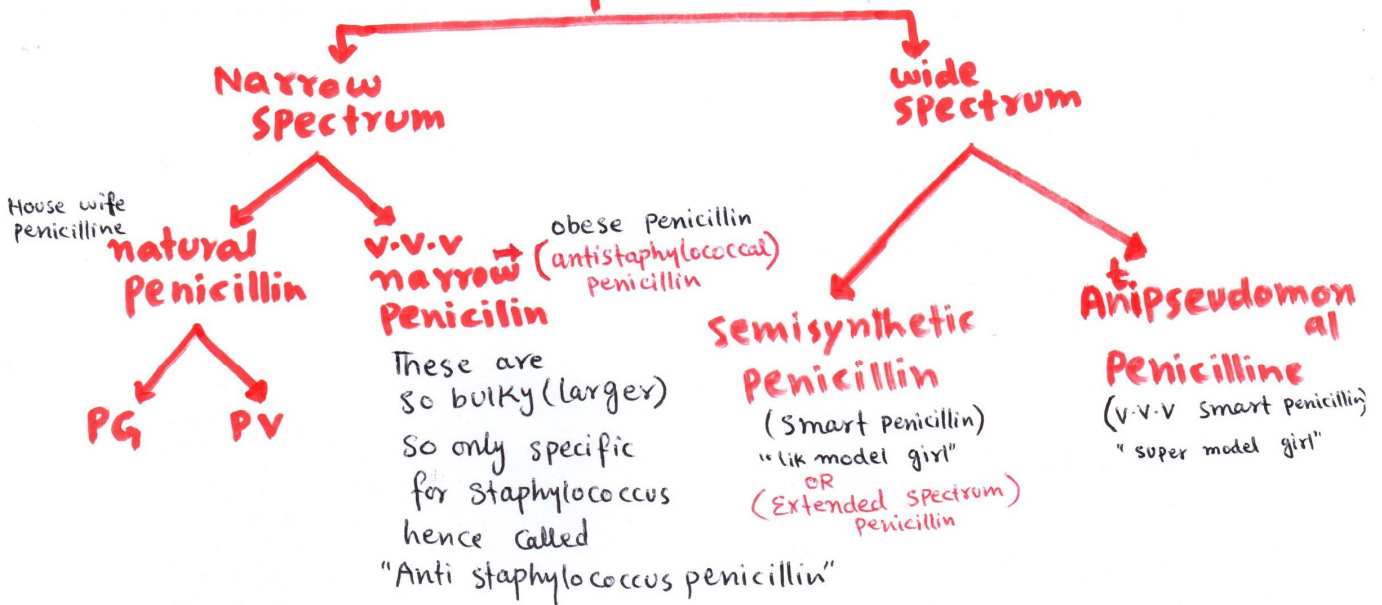 Narrow
spectrum
wide
spectrum
House wife
penicilline
natural
Penicillin
v.v.v
narrow
Penicilin
obese Penicillin
(antistaphylococcal)
penicillin
PG
PV
These are
so bulky (larger)
so only specific
for Staphylococcus
hence called
"Anti staphylococcus penicillin"
Semisynthetic
Penicillin
(Smart Penicillin)
"lik model girl"
OR
(Extended Spectrum)
Penicillin
Antipseudomon
al
Penicilline
(v.v.v smart penicillin)
"super model girl"